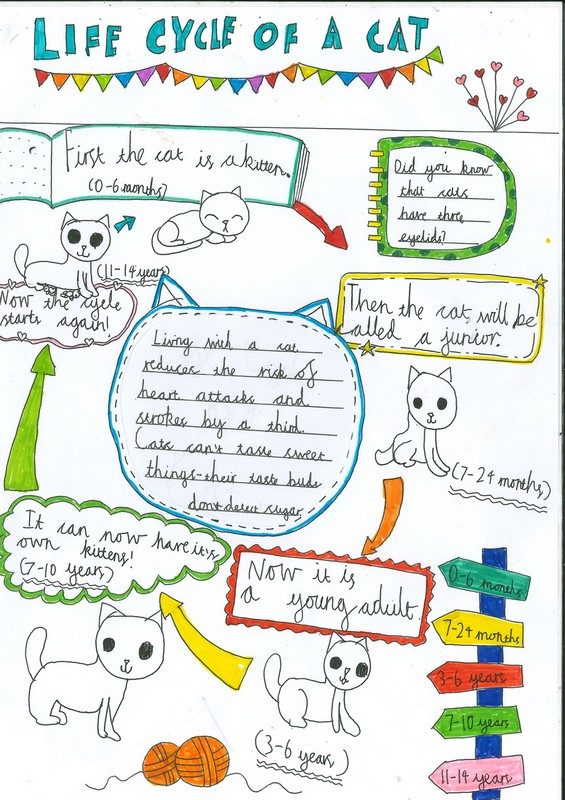 LIFE CYCLE OF A CAT
First the cat is a kitten.
(0-6 months)
Did you know
that cats
have three
eyelids?
(11-14 years)
Now the cycle
starts again!
Then the cat will be
called a junior.
Living with a cat
reduces the risk of
heart attacks and
strokes by a third.
Cats can't taste sweet
things-their taste buds
don't detect sugar.
(7-24 months)
It can now have it's
own kittens!
(7-10 years)
Now it is
a young adult.
(3-6 years)
0-6 months
7-24 months
3-6 years
7-10 years
11-14 years